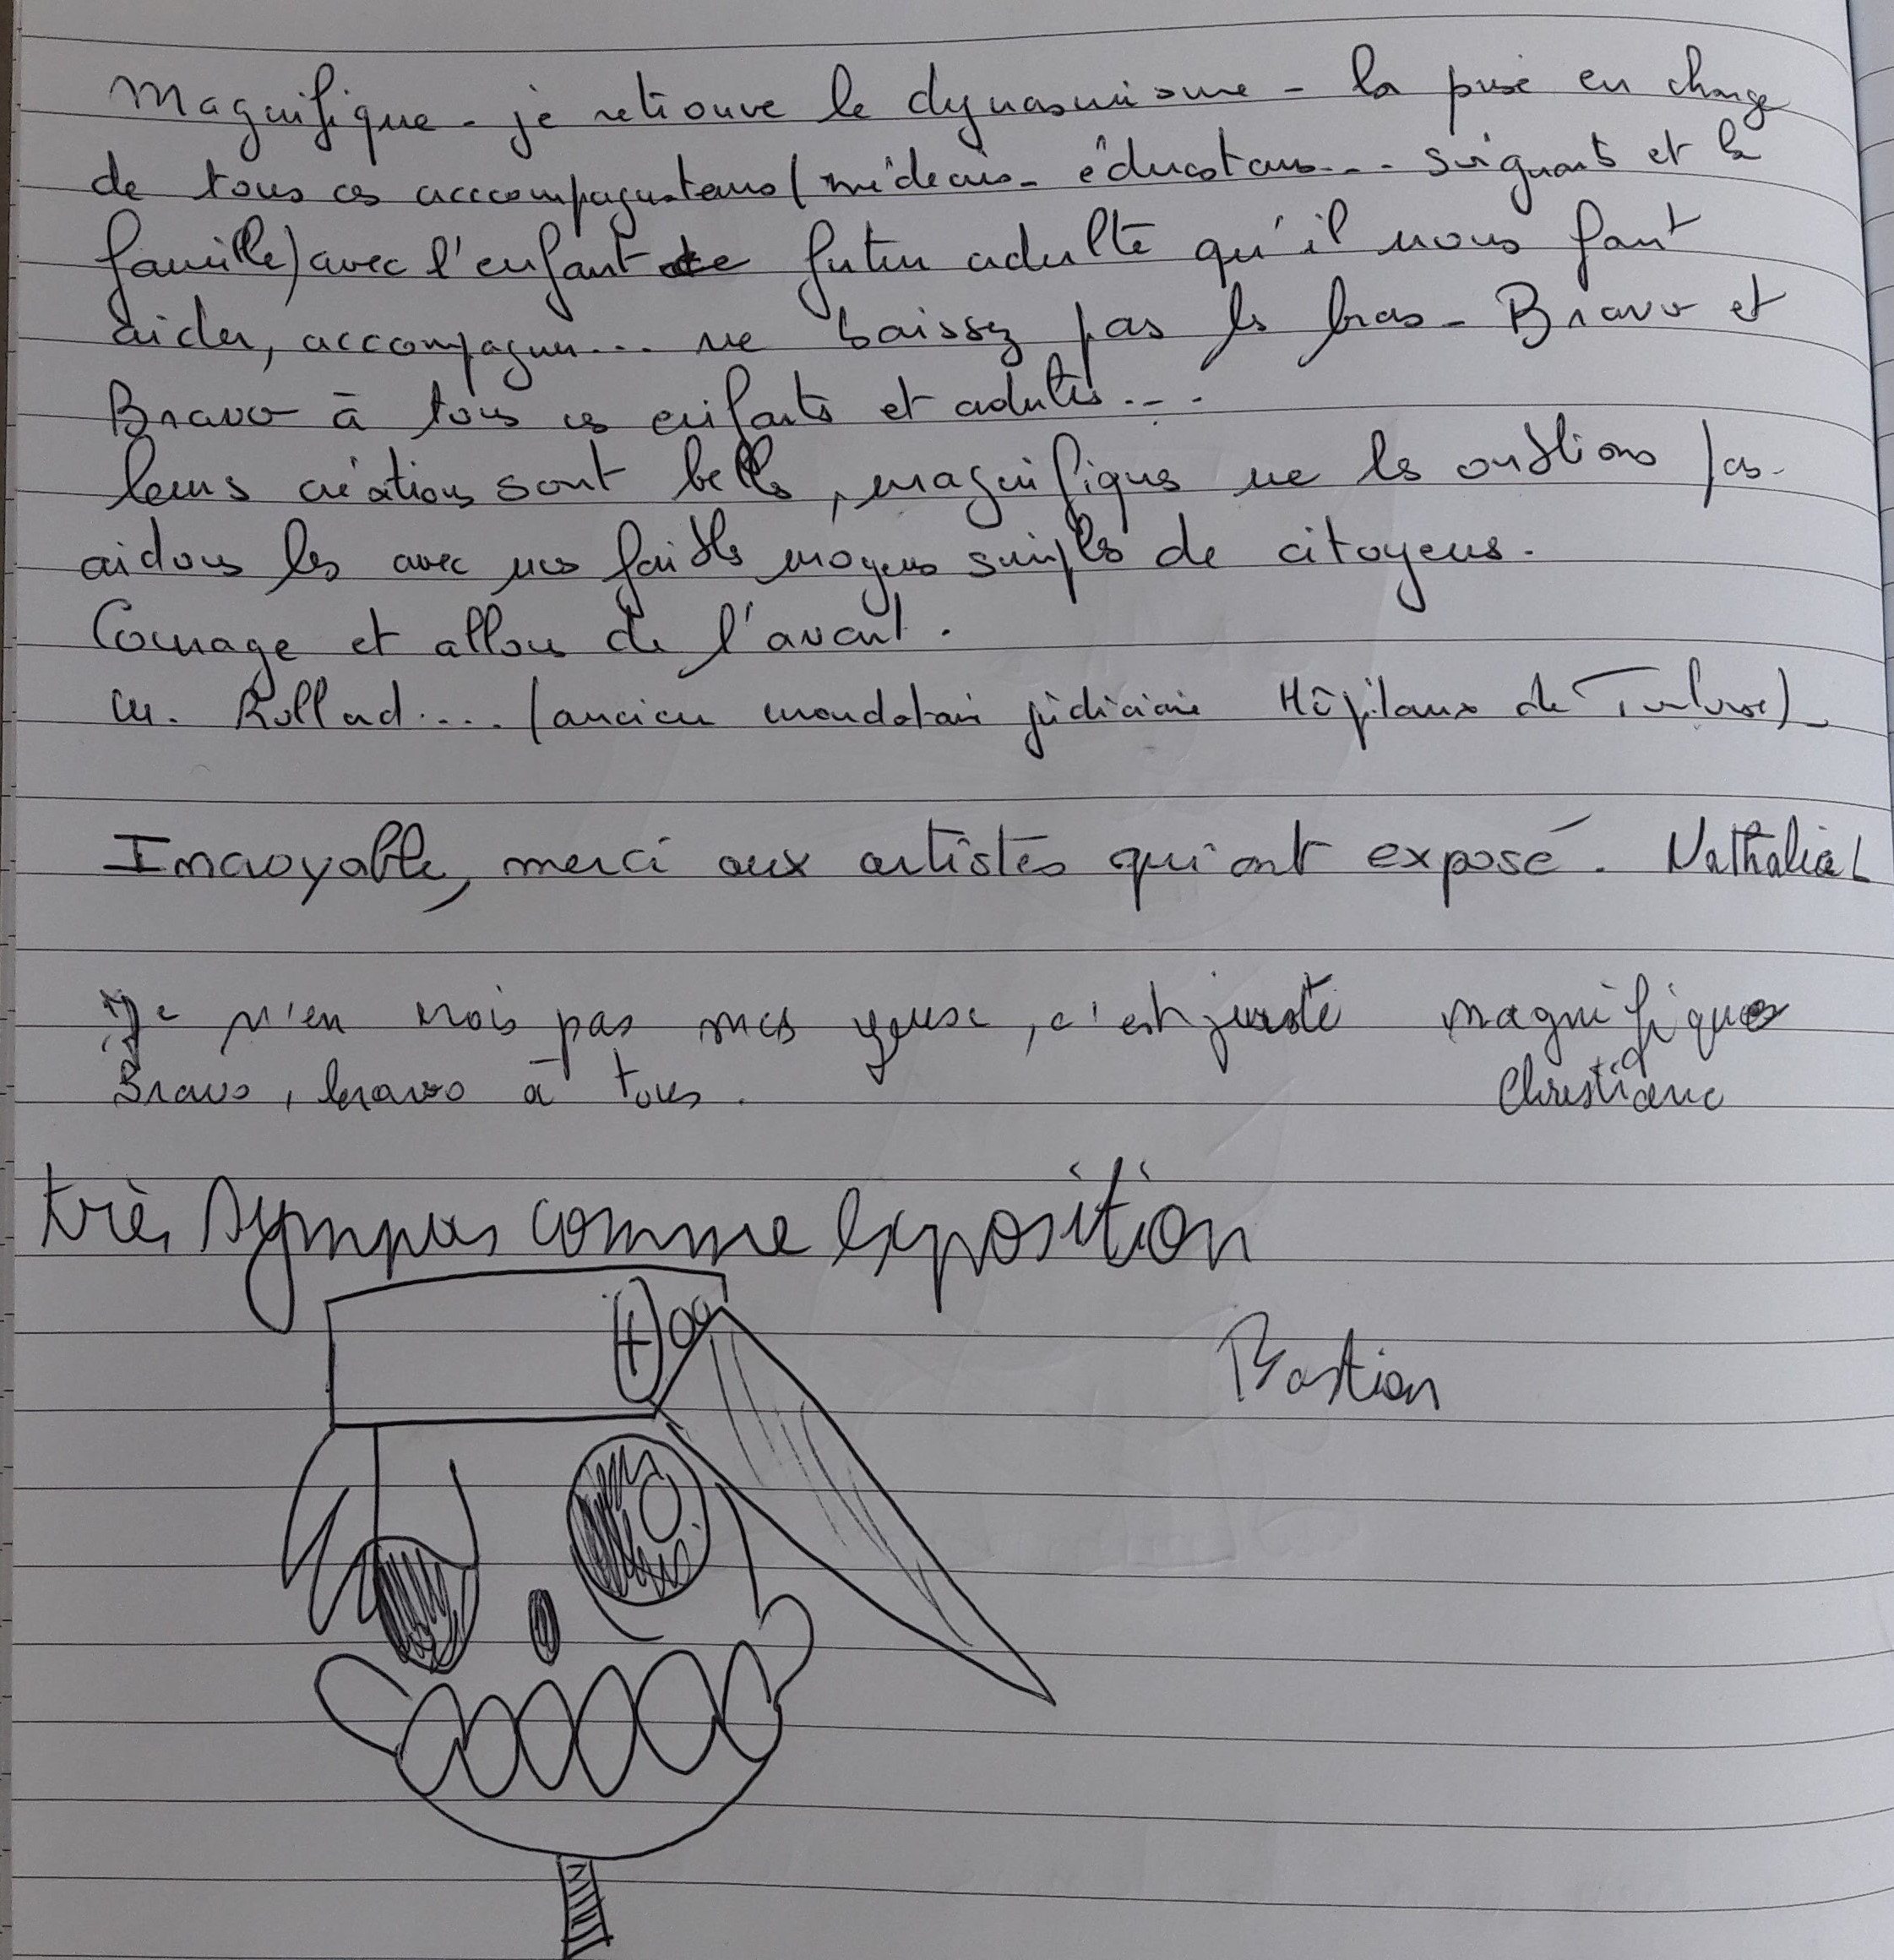 Magnifique - je retrouve le dynasmisme - la prise en charge
de tous ces acccompagnateurs (médecins - éducateurs... soignants et la
famille) avec l'enfant futur adulte qu'il nous faut
aider, accompagner... ne baissez pas les bras - Bravo et
Bravo à tous ces enfants et adultes...
leurs créations sont belles, magnifiques ne les oublions pas -
aidons les avec nos faibles moyens simples de citoyens.
Courage et allons de l'avant.
M. Rolland.... (ancien mandataire judiciaire Hôpitaux de Toulouse) -
Incroyable, merci aux artistes qui ont exposé. Nathalie L
Je n'en crois pas mes yeux, c'est juste magnifique
Bravo, bravo à tous. Christiane
très sympas comme exposition
Bastian